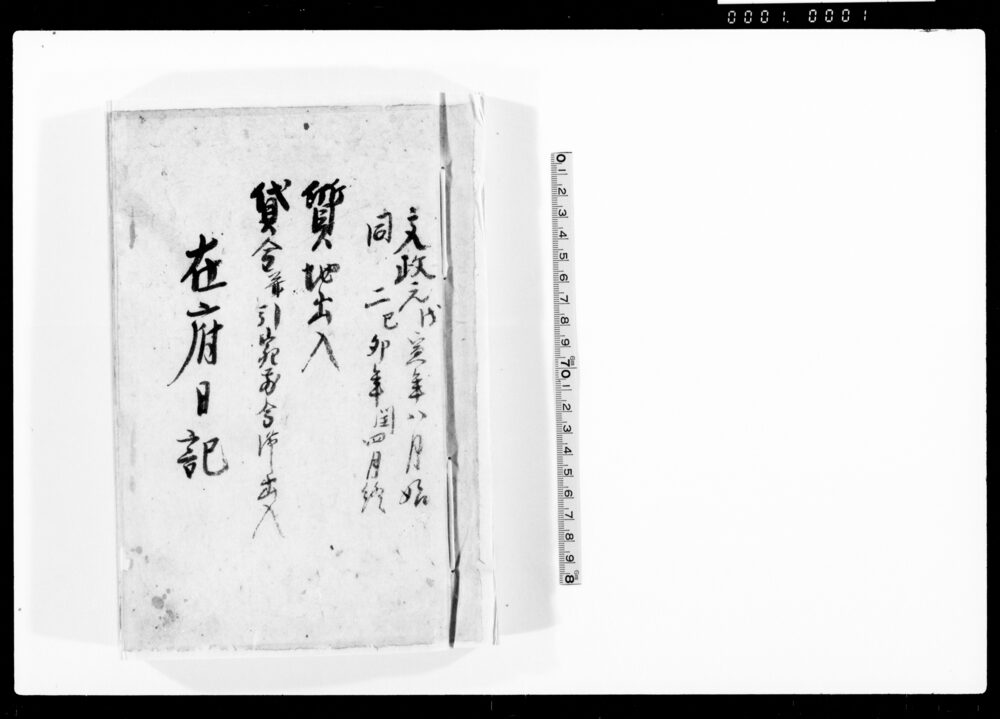 0001. 0001
文政元戊寅年八月始
同二己卯年閏四月終
質地出入
貸金并引出入
在府日記
0 1 2 3 4 5 6 7 8 9 10 1 2 3 4 5 6 7 8 9